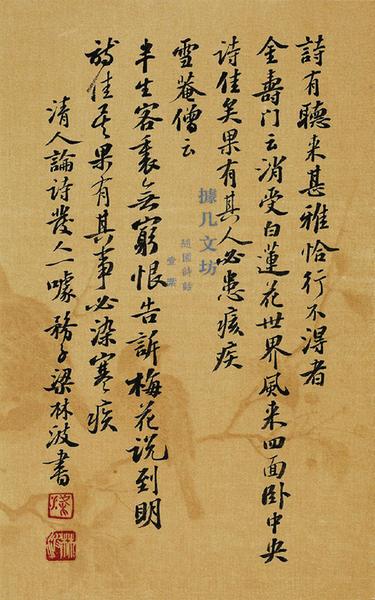 詩有聽来甚雅恰行不得者
金壽门云消受白蓮花世界風来四面卧中央
诗佳矣果有其人必患痎疾
雪菴僧云
半生客裏无窮恨告訴梅花说到明
詩佳矣果有其事必染寒疾
清人論诗發人一噱務梁林波書
據几文坊
隨園詩話